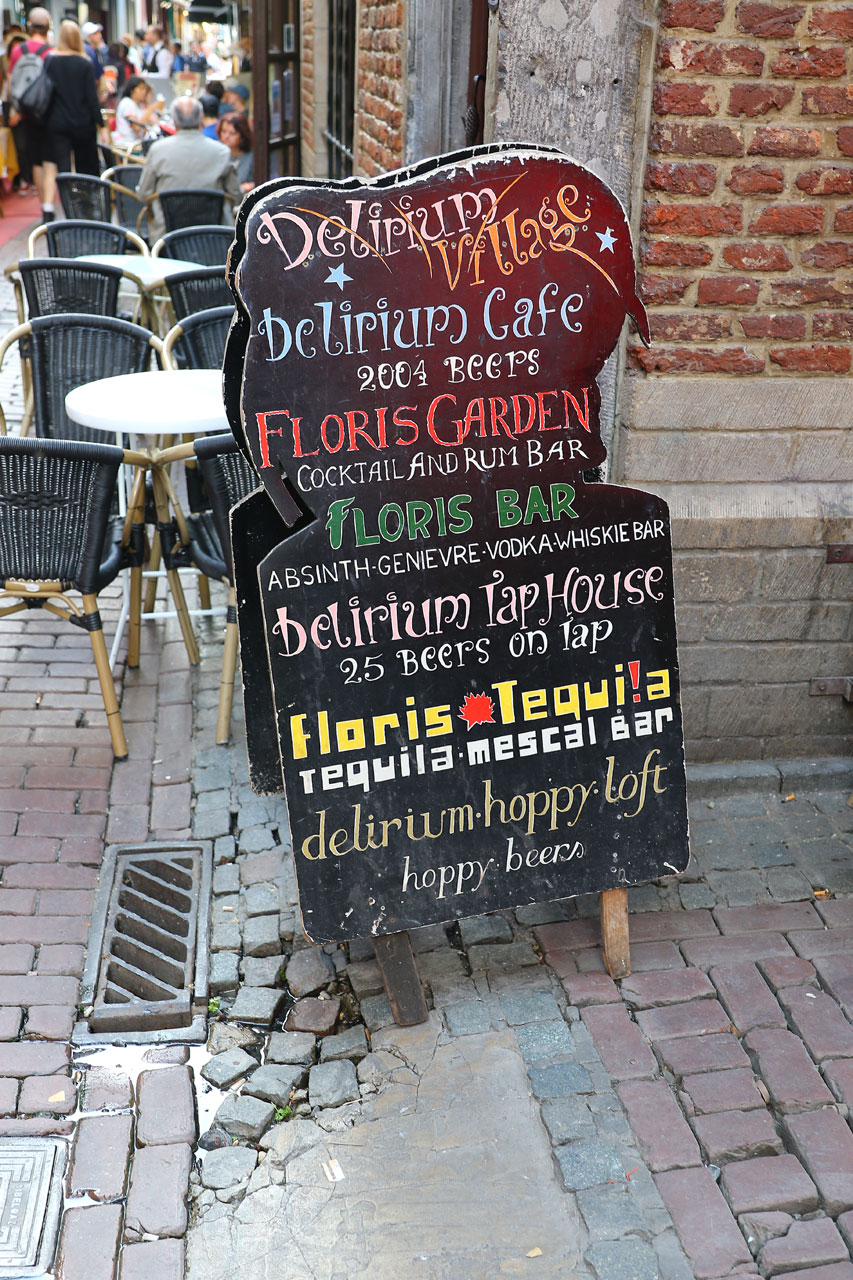 Delirium Village
Delirium Cafe
2004 Beers
FLORIS GARDEN
COCKTAIL AND RUM BAR
FLORIS BAR
ABSINTH-GENIEVRE-VODKA-WHISKIE BAR
Delirium Tap House
25 Beers on Tap
floris Tequi!a
Tequila·mescal Bar
delirium·hoppy·loft
hoppy beers